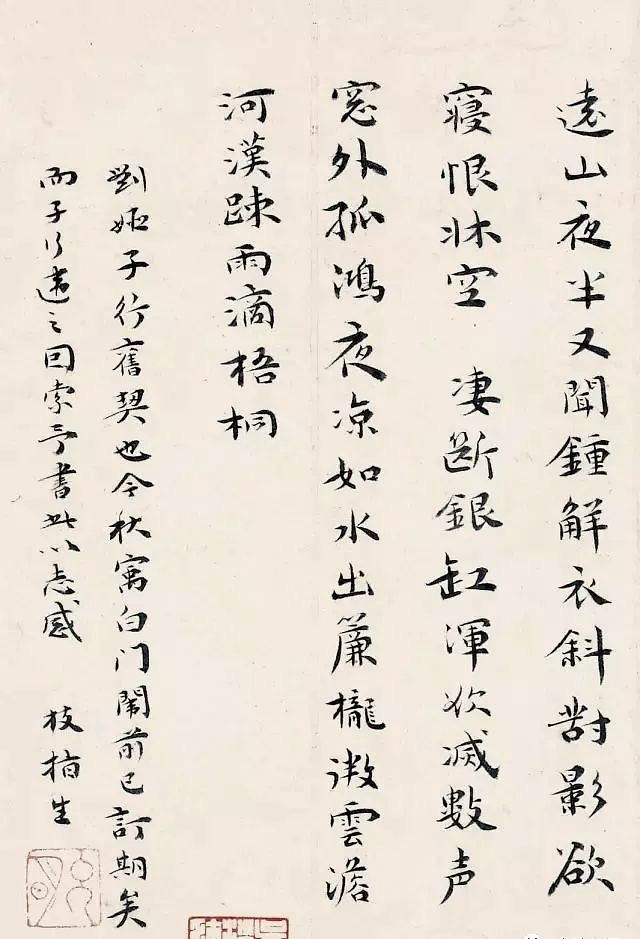 遠山夜半又聞鍾解衣斜對影欲
寢恨牀空 凄斷銀缸渾欲滅數声
窓外孤鴻夜凉如水出簾櫳微雲澹
河漢踈雨滴梧桐
劉姬子行舊契也今秋寓白门前已訂期矣
而子行違之回索予書此以志感 枝指生